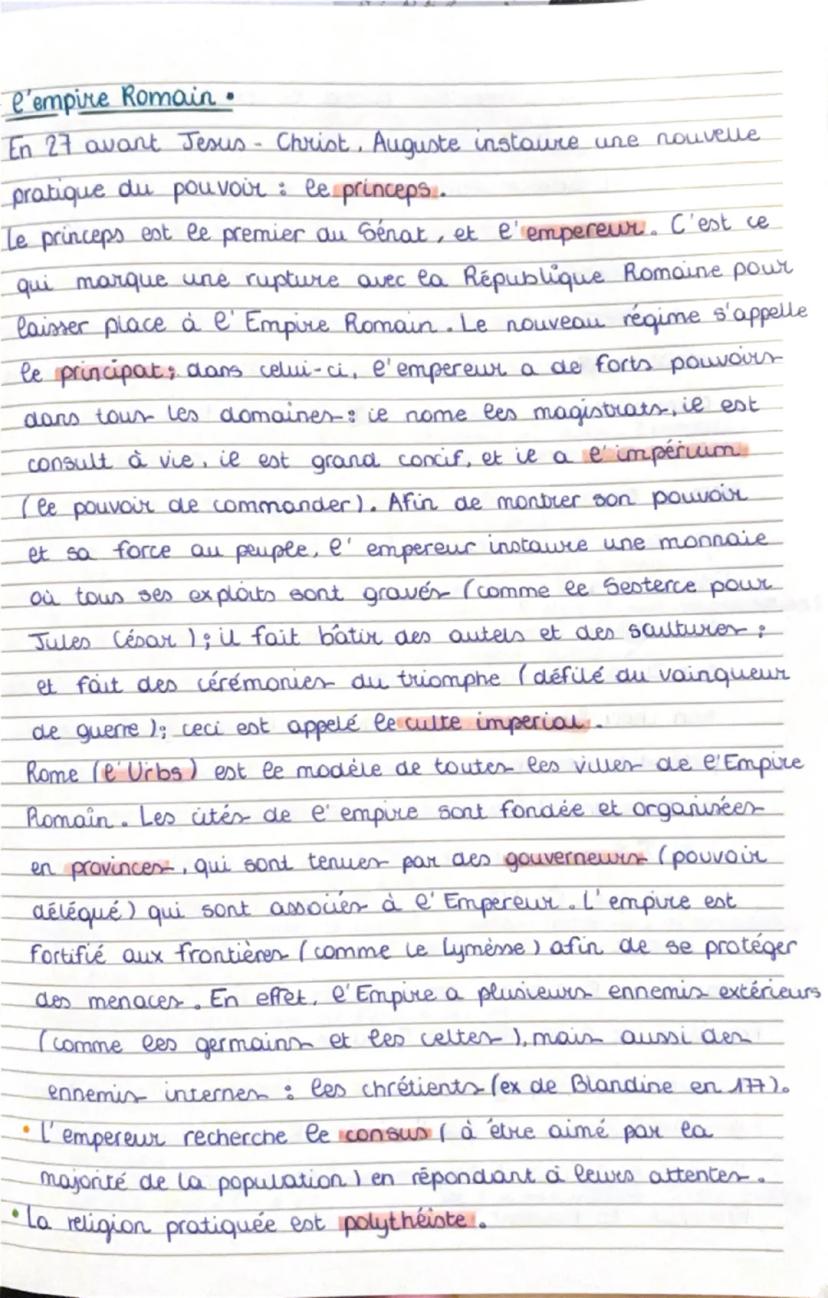 l'empire Romain.
En 27 avant Jesus-Christ, Auguste instaure une nouvelle
pratique du pouvoir : le princeps.
Le princeps est le premier du Sénat, et l'empereur. C'est ce
qui marque une rupture avec la République Romaine pour
laisser place à l'Empire Romain. Le nouveau régime s'appelle
le principat ; dans celui-ci, l'empereur a de forts pouvoirs
dans tous les domaines : il nome les magistrats, il est
consult à vie, il est grand concif, et il a l'impérium
(le pouvoir de commander). Afin de montrer son pouvoir
et sa force au peuple, l'empereur instaure une monnaie
où tous ses exploits sont gravés (comme le Sesterce pour
Jules César) ; il fait bâtir des autels et des scultures ;
et fait des cérémonies du triomphe (défilé du vainqueur
de guerre) ; ceci est appelé le culte imperial.
Rome (l'Urbs) est le modèle de toutes les villes de l'Empire
Romain. Les cités de l'empire sont fondée et organisées
en provinces, qui sont tenues par des gouverneurs (pouvoir
délégué) qui sont associés à l'Empereur. L'empire est
fortifié aux frontières (comme le Lymèsse) afin de se protéger
des menaces. En effet, l'Empire a plusieurs ennemis extérieurs
(comme les germains et les celtes), mais aussi des
ennemis internes : les chrétients (ex de Blandine en 177).
• L'empereur recherche le consus (à être aimé par la
majorité de la population) en répondant à leurs attentes.
• La religion pratiquée est polythéiste.